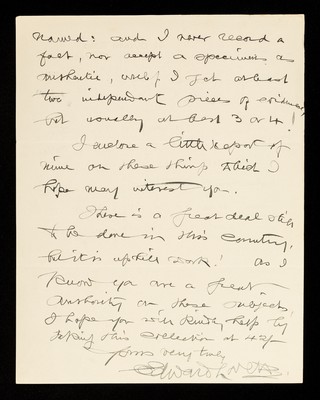 named: and I never record a
fact, nor accept a specimen as
authentic, until I get at least
two independent pieces of evidence,
but usually at least 3 or 4!
I enclose a little report of
mine on these things which I
hope may interest you.
There is a great deal still
to be done in this country,
but it is uphill work! As I
know you are a great
authority on these subjects,
I hope you will kindly help by
taking this collection at 45/-
Yours very truly
Edward